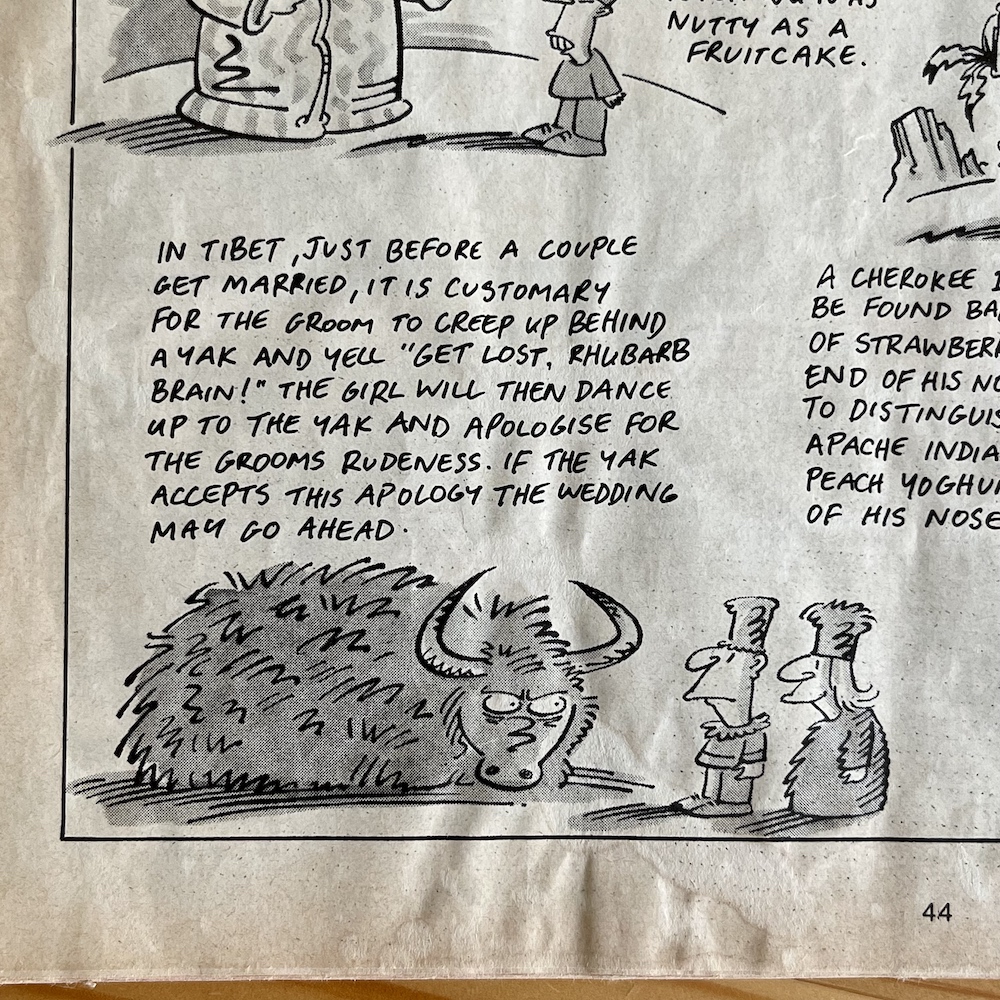 NUTTY AS A
FRUITCAKE.
IN TIBET, JUST BEFORE A COUPLE
GET MARRIED, IT IS CUSTOMARY
FOR THE GROOM TO CREEP UP BEHIND
A YAK AND YELL "GET LOST, RHUBARB
BRAIN!" THE GIRL WILL THEN DANCE
UP TO THE YAK AND APOLOGISE FOR
THE GROOMS RUDENESS. IF THE YAK
ACCEPTS THIS APOLOGY THE WEDDING
MAY GO AHEAD.
A CHEROKEE
BE FOUND
OF
END OF HIS
TO
APACHE
PEACH
OF HIS NOSE
44